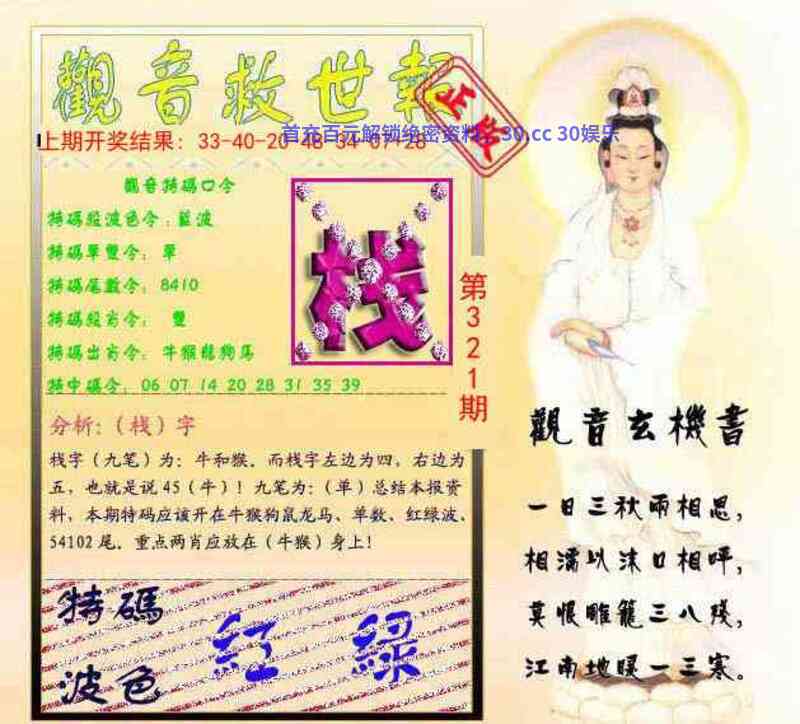 觀音救世報
正版
上期开奖结果：33-40-20-48-34-07+28
首充百元解锁绝密资料：30.cc 30娱乐
觀音特碼口令
特碼殺波色令：藍波
特碼單雙令：單
特碼尾數令：8410
特碼段肖令：雙
特碼出肖令：牛猴龍狗馬
特中碼令：06 07 14 20 28 31 35 39
栈
第321期
分析:（栈）字
栈字（九笔）为：牛和猴．而栈字左边为四，右边为
五，也就是说45（牛）！九笔为：（单）总结本报资
料，本期特码应该开在牛猴狗鼠龙马、单数、红绿波、
54102尾．重点两肖应放在（牛猴）身上！
特碼
波色
紅 綠
觀音玄機書
一日三秋兩相思，
相濡以沫口相呼，
莫恨雕籠三八殘，
江南地暖一三寒。